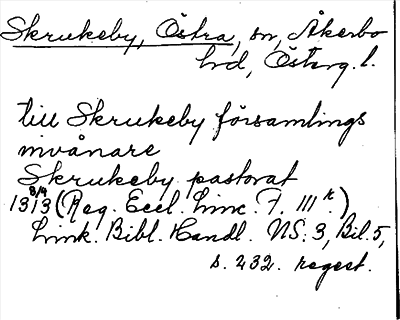 Skrukeby, Östra, sn, Åkerbo
hrd, Österg. l.
till Skrukeby församlings
invånare
Skrukeby pastorat
8/9
1313 (Reg. Eccl. Linc. F. III k.)
Link. Bibl. Handl. NS: 3, Bil. 5,
s. 232. regest.